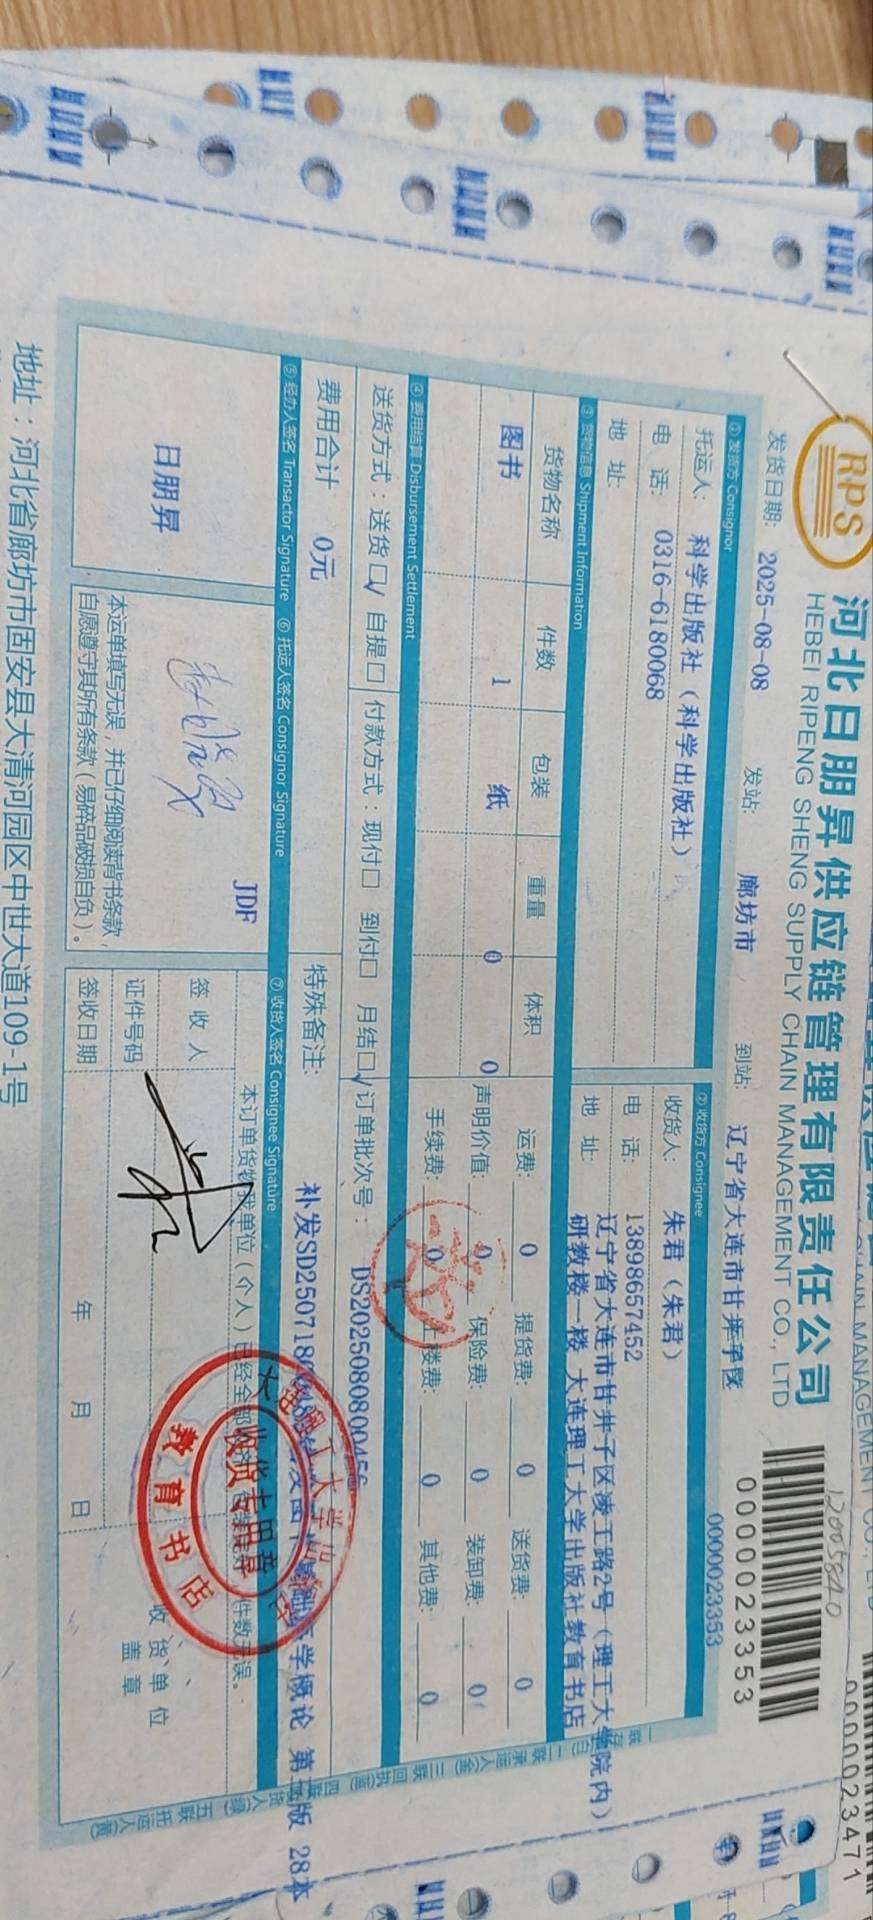 RPS
河北日朋昇供应链管理有限责任公司
HEBEI RIPENG SHENG SUPPLY CHAIN MANAGEMENT CO., LTD
12005840
0000023353
0000023471
发货日期: 2025-08-08 发站: 廊坊市 到站: 辽宁省大连市甘井子区
0000023353
① 发货方 Consignor
托运人: 科学出版社(科学出版社)
电 话: 0316-6180068
地 址:
② 收货方 Consignee
收货人: 朱君(朱君)
电 话: 13898657452
地 址: 辽宁省大连市甘井子区凌工路2号(理工大学院内)
研教楼一楼 大连理工大学出版社教育书店
③ 货物信息 Shipment Information
货物名称 件数 包装 重量 体积
图书 1 纸 0 0
运费: 0 提货费: 0 送货费: 0
声明价值: 0 保险费: 0 装卸费: 0
手续费: 0 上楼费: 0 其他费: 0
④ 费用结算 Disbursement Settlement
送货方式:送货□√ 自提□ 付款方式:现付□ 到付□ 月结□√ 订单批次号:
费用合计 0元
特殊备注:
⑤ 经办人签名 Transactor Signature ⑥ 托运人签名 Consignor Signature ⑦ 收货人签名 Consignee Signature
日朋昇
JDF
本运单填写无误,并已仔细阅读背书条款,
自愿遵守其所有条款(易碎品破损自负)。
签 收 人
证件号码
签收日期 年 月 日
收 货 单 位
盖 章
教育书店
地址:河北省廊坊市固安县大清河园区中世大道109-1号